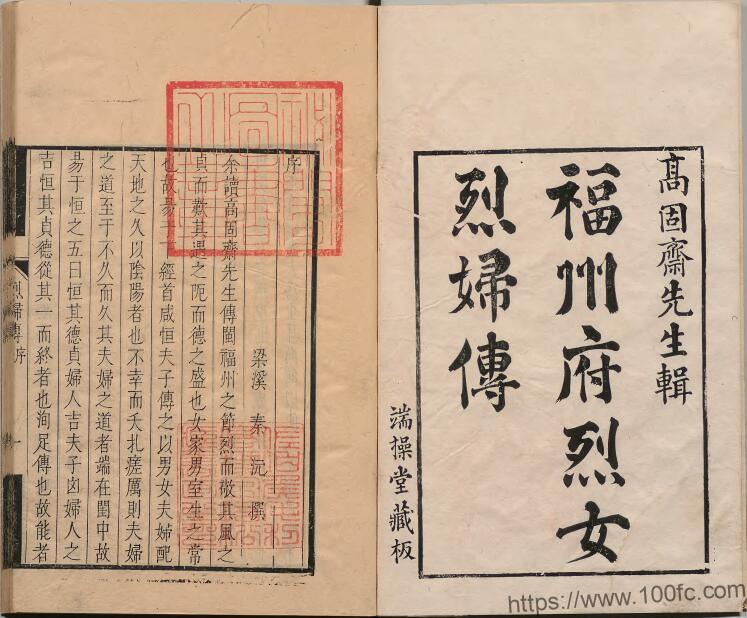 高固齋先生輯
福州府烈女
烈婦傳
端操堂藏板
序
梁溪 秦沅 撰
余讀高固齋先生傳閩福州之節烈而敬其風之
貞而歎其遇之阨而德之盛也女家男室生之常
也故易下經首咸恒夫子傳之以男女夫婦配
天地之久以陰陽者也不幸而夭扎瘥厲則夫婦
之道至于不久而久其夫婦之道者端在閨中故
易于恒之五曰恒其德貞婦人吉夫子凶婦人之
吉恒其貞德從其一而終者也洵足傳也故能者
烈婦傳 序 一
https://www.100fc.com